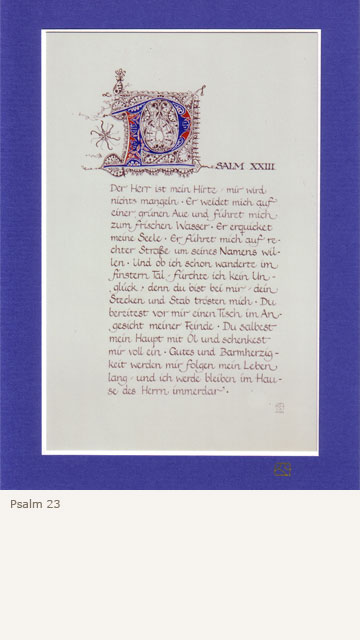 PSALM XXIII
Der Herr ist mein Hirte · mir wird
nichts mangeln · Er weidet mich auf
einer grünen Aue und führet mich
zum frischen Wasser · Er erquicket
meine Seele · Er führt mich auf re-
chter Straße um seines Namens wil-
len · Und ob ich schon wanderte im
finstern Tal · fürchte ich kein Un-
glück, denn du bist bei mir · dein
Stecken und Stab trösten mich · Du
bereitest vor mir einen Tisch im An-
gesicht meiner Feinde · Du salbest
mein Haupt mit Öl und schenkest
mir voll ein · Gutes und Barmherzig-
keit werden mir folgen mein Leben
lang · und ich werde bleiben im Hau-
se des Herrn immerdar ·
Psalm 23